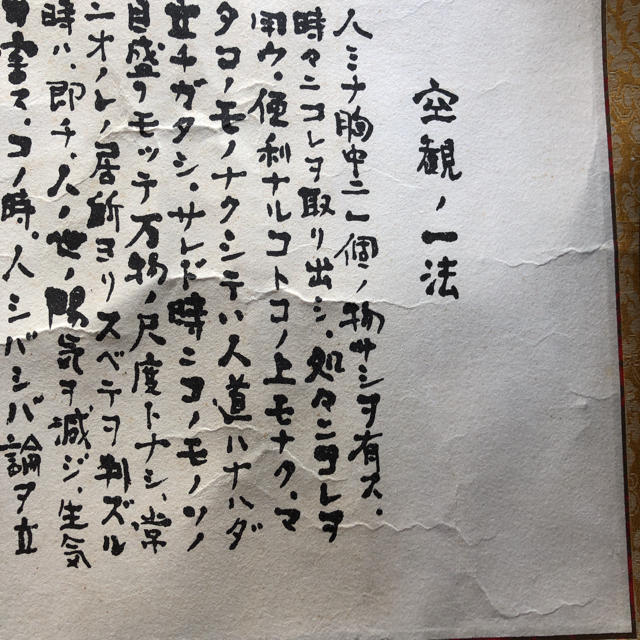 空観ノ一法
人ミナ胸中ニ一個ノ物サシヲ有ス・
時々ニコレヲ取り出シ、処々ニコレヲ
用ウ・便利ナルコトコノ上モナク・マ
タコノモノナクシテハ人道ハナハダ
立チガタシ・サレド時ニコノモノソノ
目盛ヲモッテ万物ノ尺度トナシ、常
ニオノレノ居所ヨリスベテヲ判ズル
時ハ、即チ、人ノ世ノ陽気ヲ減ジ、生気
害ス・コノ時、人シバシバ論ヲ立